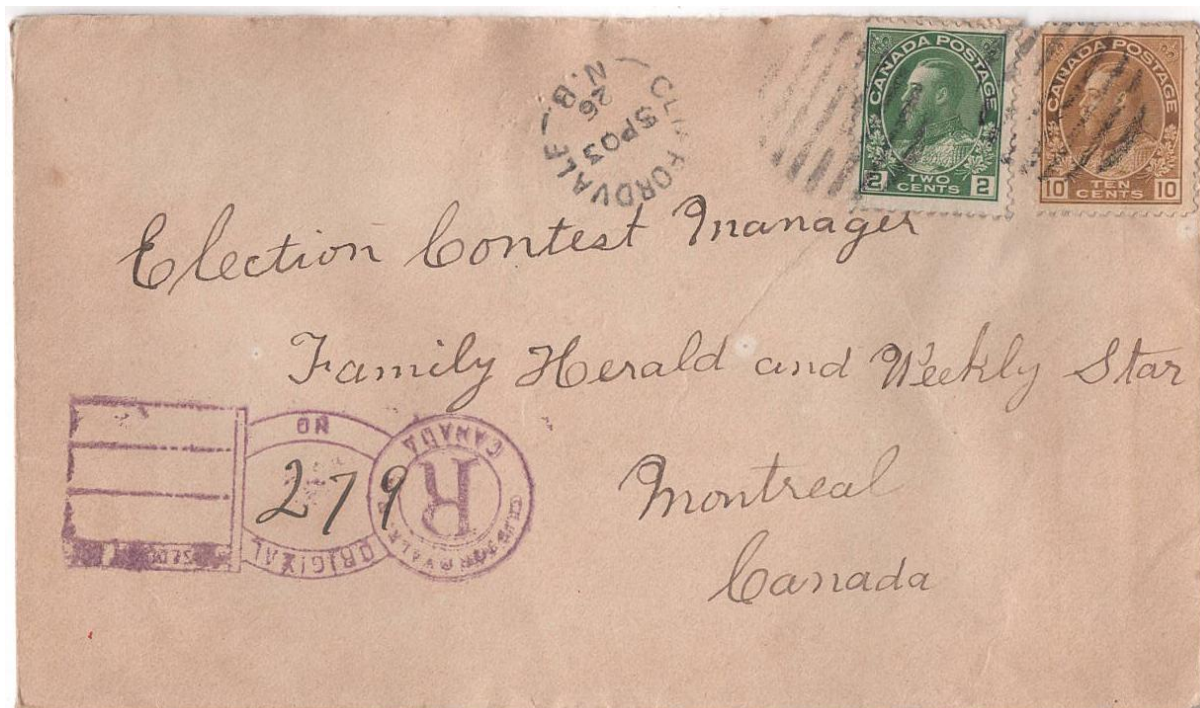 CLIFFORDVALE
N.B.
SP 03
26
CANADA POSTAGE
2 TWO CENTS 2
CANADA POSTAGE
10 TEN CENTS 10
Election Contest Manager
Family Herald and Weekly Star
Montreal
Canada
NO
279
ORIGINAL
R
CANADA